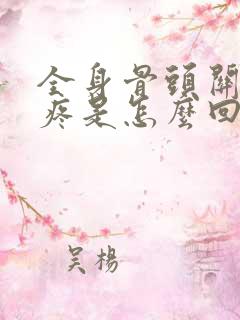 全身骨頭關
疼是怎麼回
吴楊